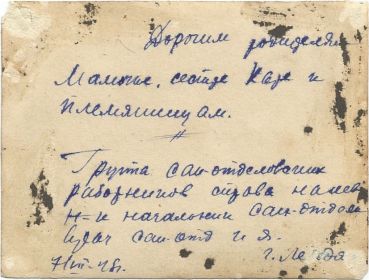 Дорогим родителям
Мамочке, сестре Каде и
племянницам.
Группа сан-отделовских
работников справа налев
н-к начальник сан-отдела
врач сан-отд и я.
г.